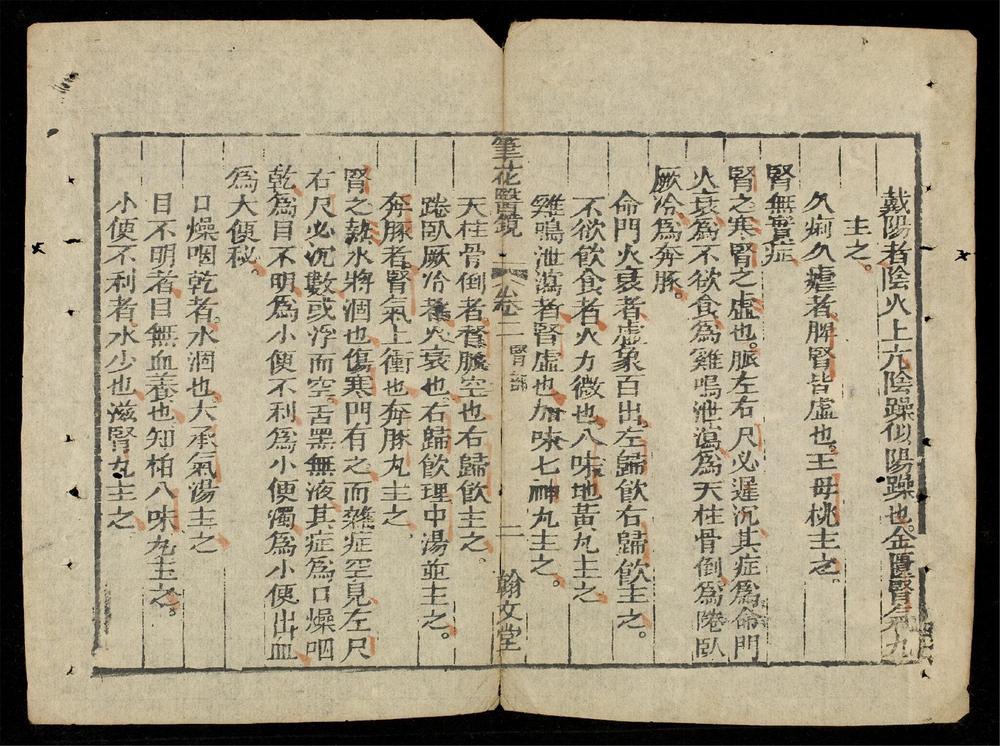 戴陽者陰火上亢陰躁似陽躁也金匱腎氣丸
主之。
久痢久瘧者脾腎皆虛也王母桃主之。
腎無實症
腎之寒腎之虛也。脈左右尺必遲沉其症爲命門
火衰爲不欲食爲雞鳴泄瀉爲天柱骨倒爲踡臥
厥冷爲奔豚。
命門火衰者虛象百出左歸飲右歸飲主之。
不欲飲食者火力微也八味地黃丸主之
雞鳴泄瀉者腎虛也加味七神丸主之。
筆花醫鏡 卷二 腎部 二 翰文堂
天柱骨倒者督脈空也右歸飲主之。
踡臥厥冷者火衰也右歸飲理中湯並主之。
奔豚者腎氣上衝也奔豚丸主之
腎之熱水將涸也傷寒門有之而雜症罕見左尺
右尺必沉數或浮而空。舌黑無液其症爲口燥咽
乾爲目不明爲小便不利爲小便濁爲小便出血
爲大便秘
口燥咽乾者水涸也大承氣湯主之
目不明者目無血養也知柏八味丸主之。
小便不利者水少也滋腎丸主之